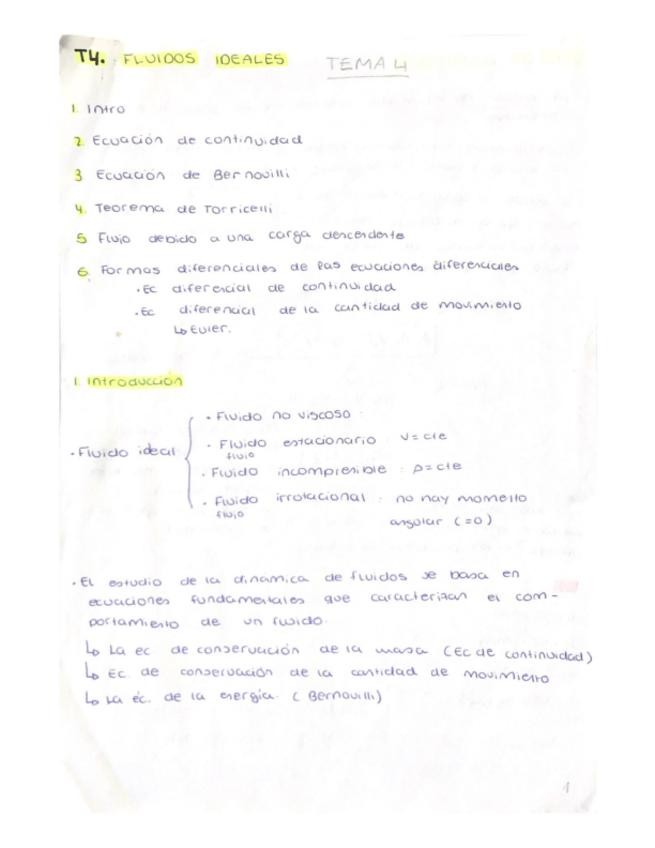 T4. FLUIDOS IDEALES TEMA 4
1. Intro
2. Ecuación de continuidad
3 Ecuación de Bernouilli
4. Teorema de Torricelli
5 Flujo debido a una carga descendente
6. Formas diferenciales de las ecuaciones diferenciales
· Ec diferencial de continuidad
· Ec diferencial de la cantidad de movimiento
↳ Euler.
1. Introducción
· Fluido ideal
· Fluido no viscoso :
· Fluido estacionario : V = cte
flujo
· Fluido incompresible : ρ = cte
· Fluido irrotacional : no hay momento
flujo
angular (=0)
· El estudio de la dinámica de fluidos se basa en
ecuaciones fundamentales que caracterizan el com-
portamiento de un fluido.
↳ La ec de conservación de la masa (Ec de continuidad)
↳ Ec. de conservación de la cantidad de movimiento
↳ La éc. de la energía. (Bernouilli)
1